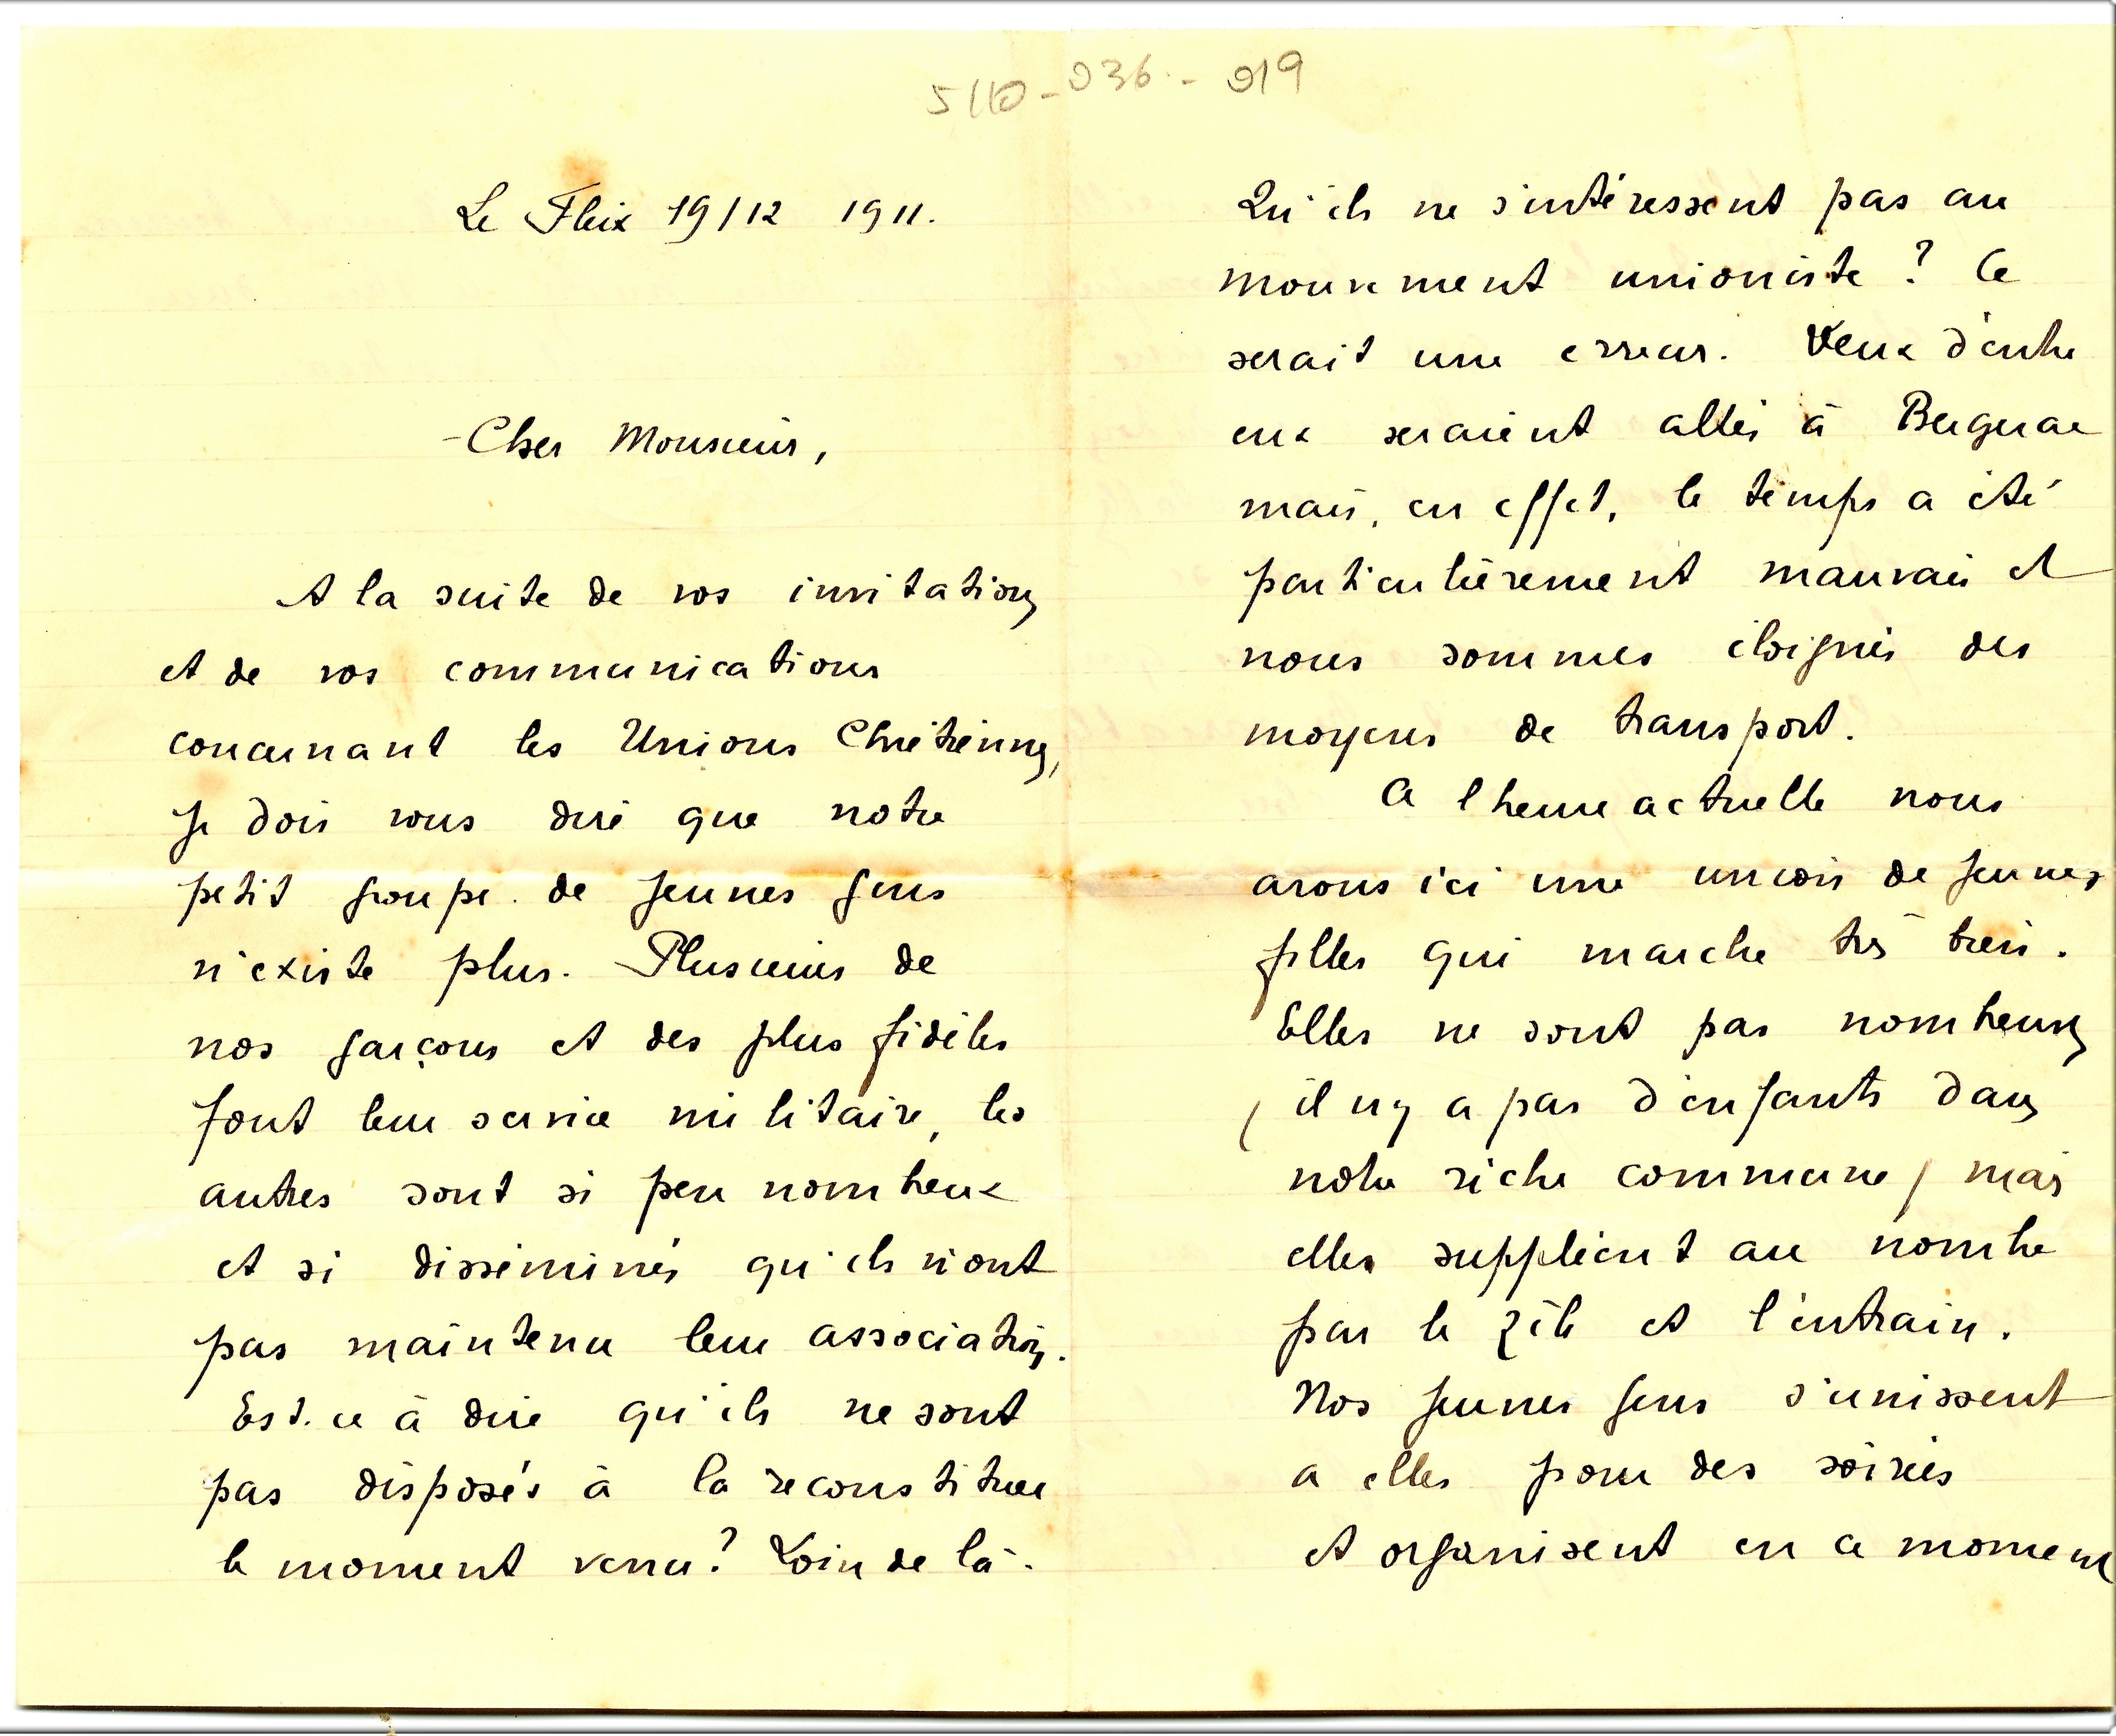 5110-036-019
Le Fleix 19/12 1911.
Cher Monsieur,
A la suite de vos invitations
et de vos communications
concernant les Unions Chrétiennes,
je dois vous dire que notre
petit groupe de jeunes gens
n'existe plus. Plusieurs de
nos garçons et des plus fidèles
font leur service militaire, les
autres sont si peu nombreux
et si disséminés qu'ils n'ont
pas maintenu leur association.
Est-ce à dire qu'ils ne sont
pas disposés à la reconstituer
le moment venu? Loin de là.
Qu'ils ne s'intéressent pas au
mouvement unioniste? Ce
serait une erreur. Deux d'entre
eux seraient allés à Bergerac
mais, en effet, le temps a été
particulièrement mauvais et
nous sommes éloignés des
moyens de transport.
A l'heure actuelle nous
avons ici une union de jeunes
filles qui marche très bien.
Elles ne sont pas nombreuses
(il n'y a pas d'enfants dans
notre riche commune) mais
elles suppléent au nombre
par le zèle et l'entrain.
Nos jeunes gens s'unissent
a elles pour des soirées
et organisent en ce moment